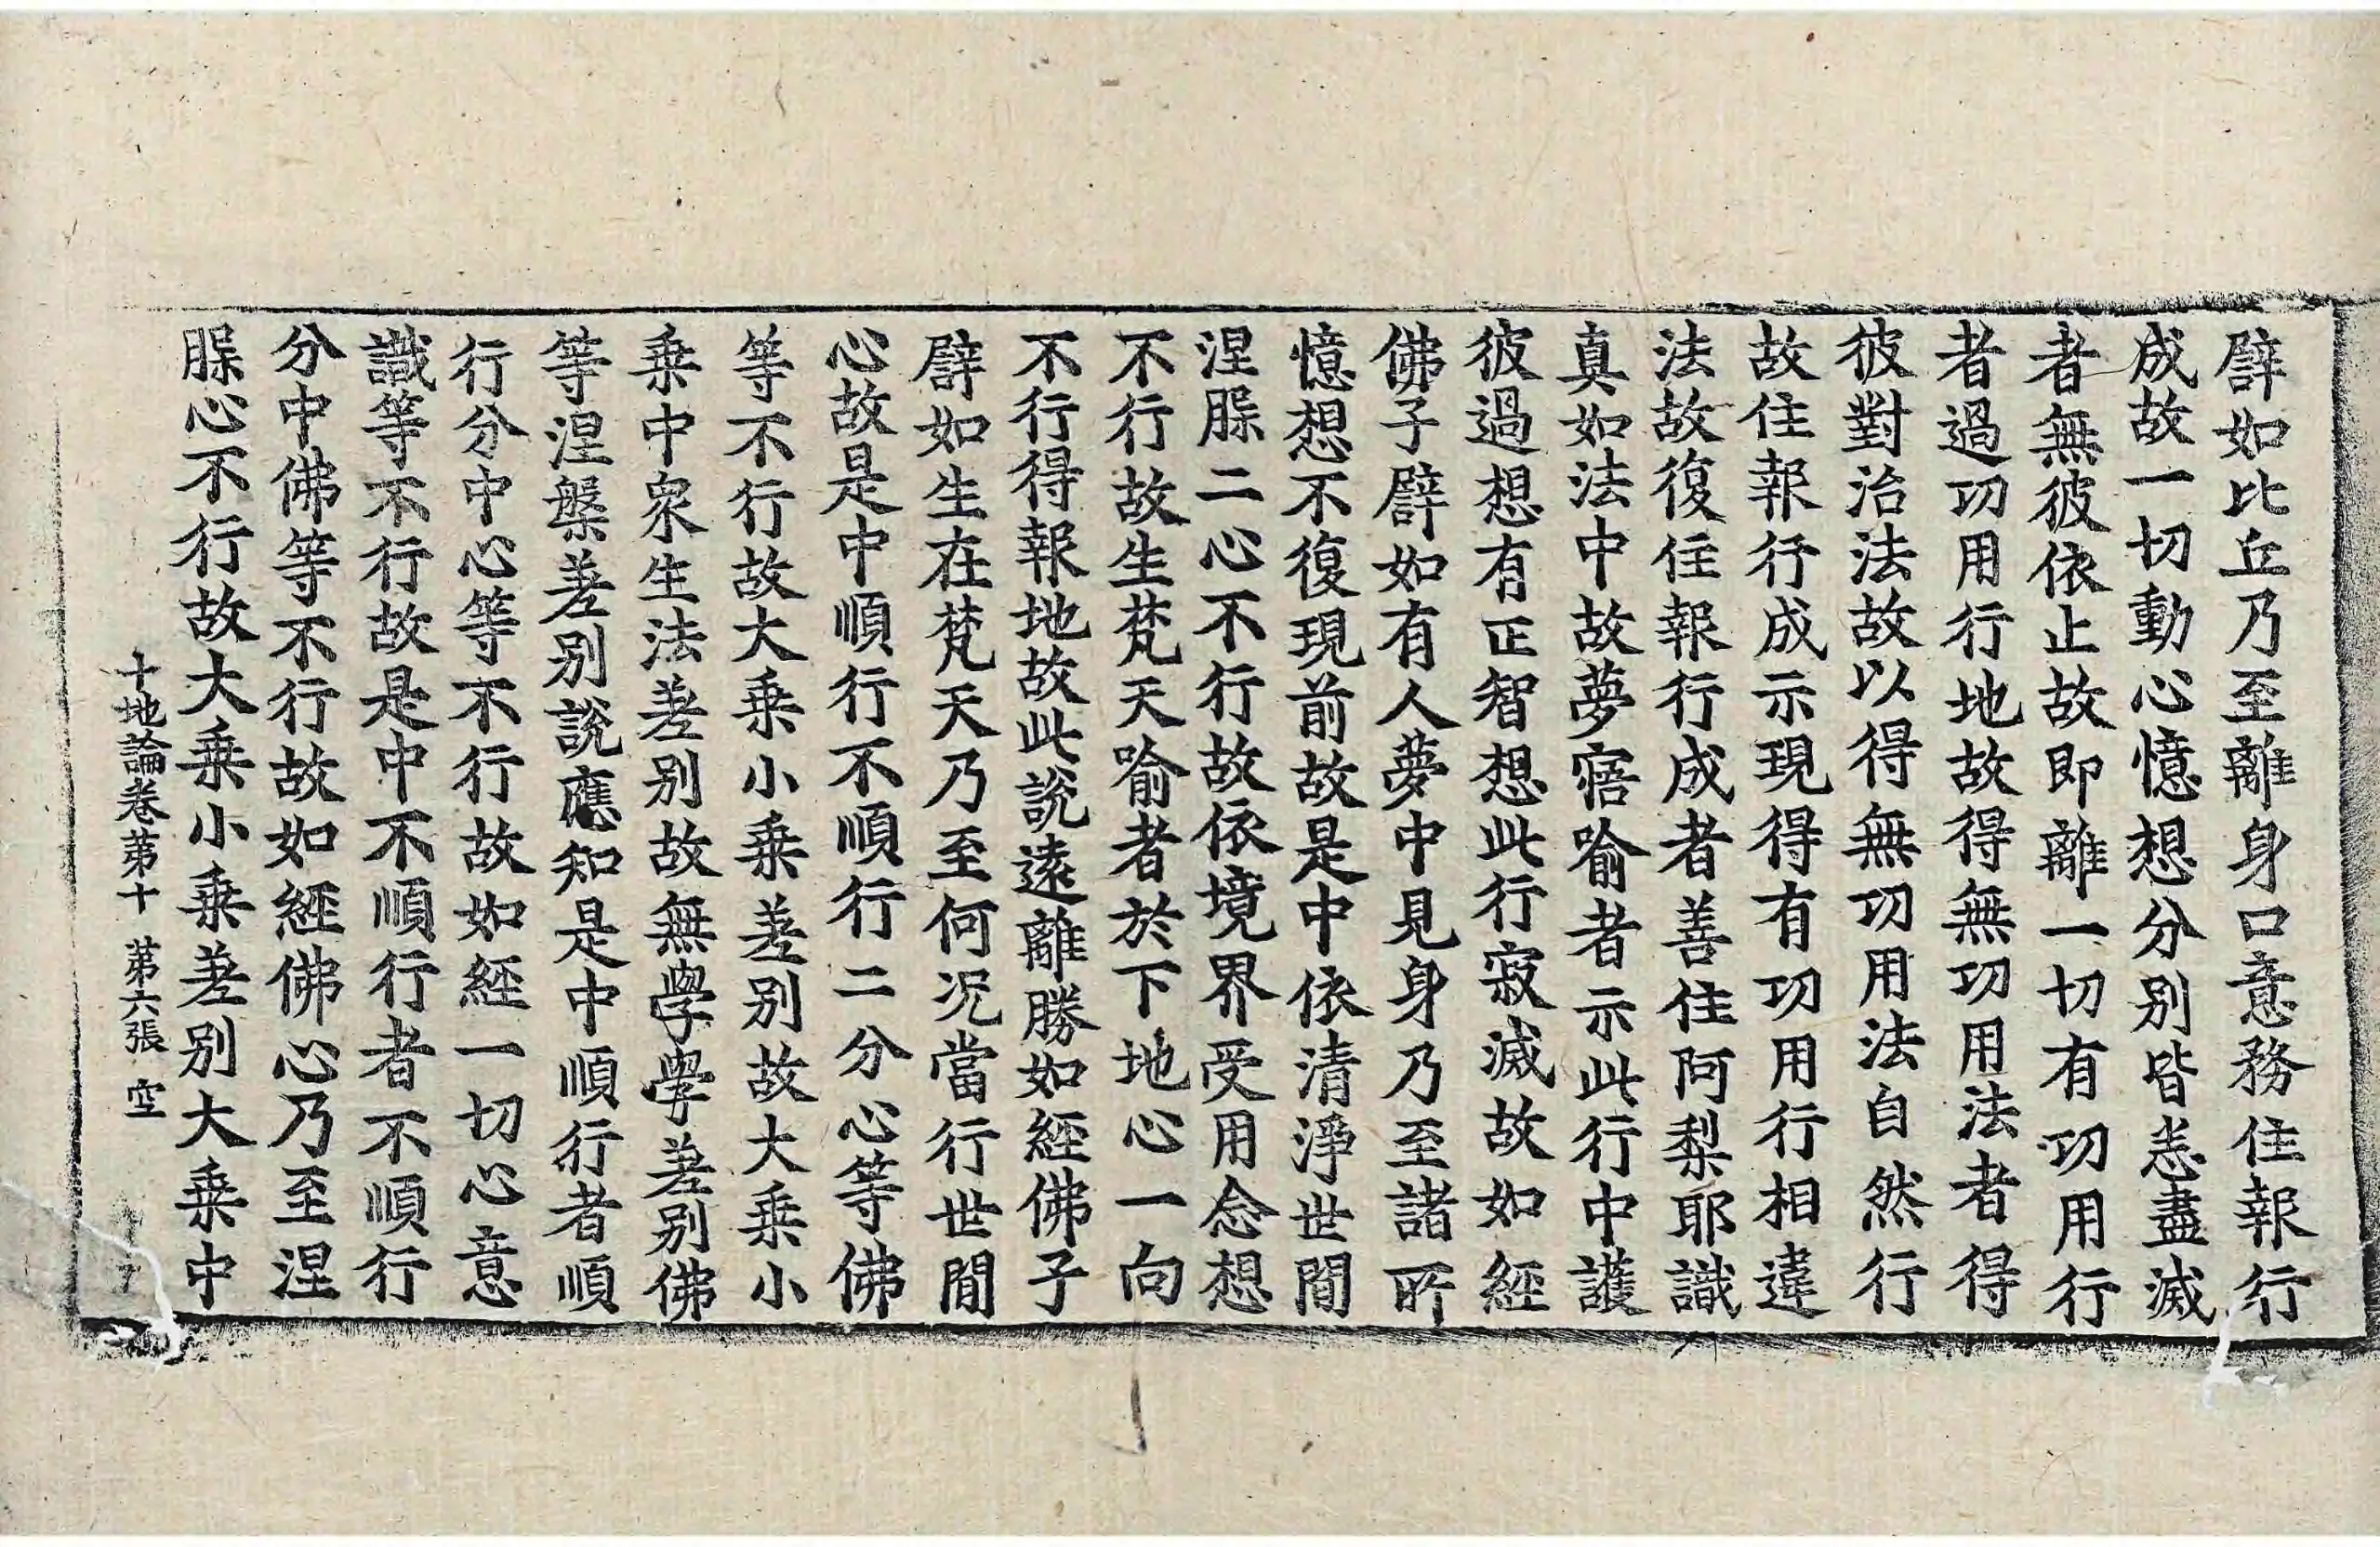 譬如比丘乃至離身口意務住報行
成故一切動心憶想分別皆悉盡滅
者無彼依止故即離一切有功用行
者過功用行地故得無功用法者得
彼對治法故以得無功用法自然行
故住報行成示現得有功用行相違
法故復住報行成者善住阿梨耶識
真如法中故夢寤喻者示此行中護
彼過想有正智想此行寂滅故如經
佛子譬如有人夢中見身乃至諸所
憶想不復現前故是中依清淨世間
涅槃二心不行故依境界受用念想
不行故生梵天喻者於下地心一向
不行得報地故此說遠離勝如經佛子
譬如生在梵天乃至何况當行世間
心故是中順行不順行二分心等佛
等不行故大乗小乗差别故大乗小
乗中衆生法差别故無學學差别佛
等涅槃差别說應知是中順行者順
行分中心等不行故如經一切心意
識等不行故是中不順行者不順行
分中佛等不行故如經佛心乃至涅
槃心不行故大乗小乗差别大乗中
十地論卷第十 第六張 空